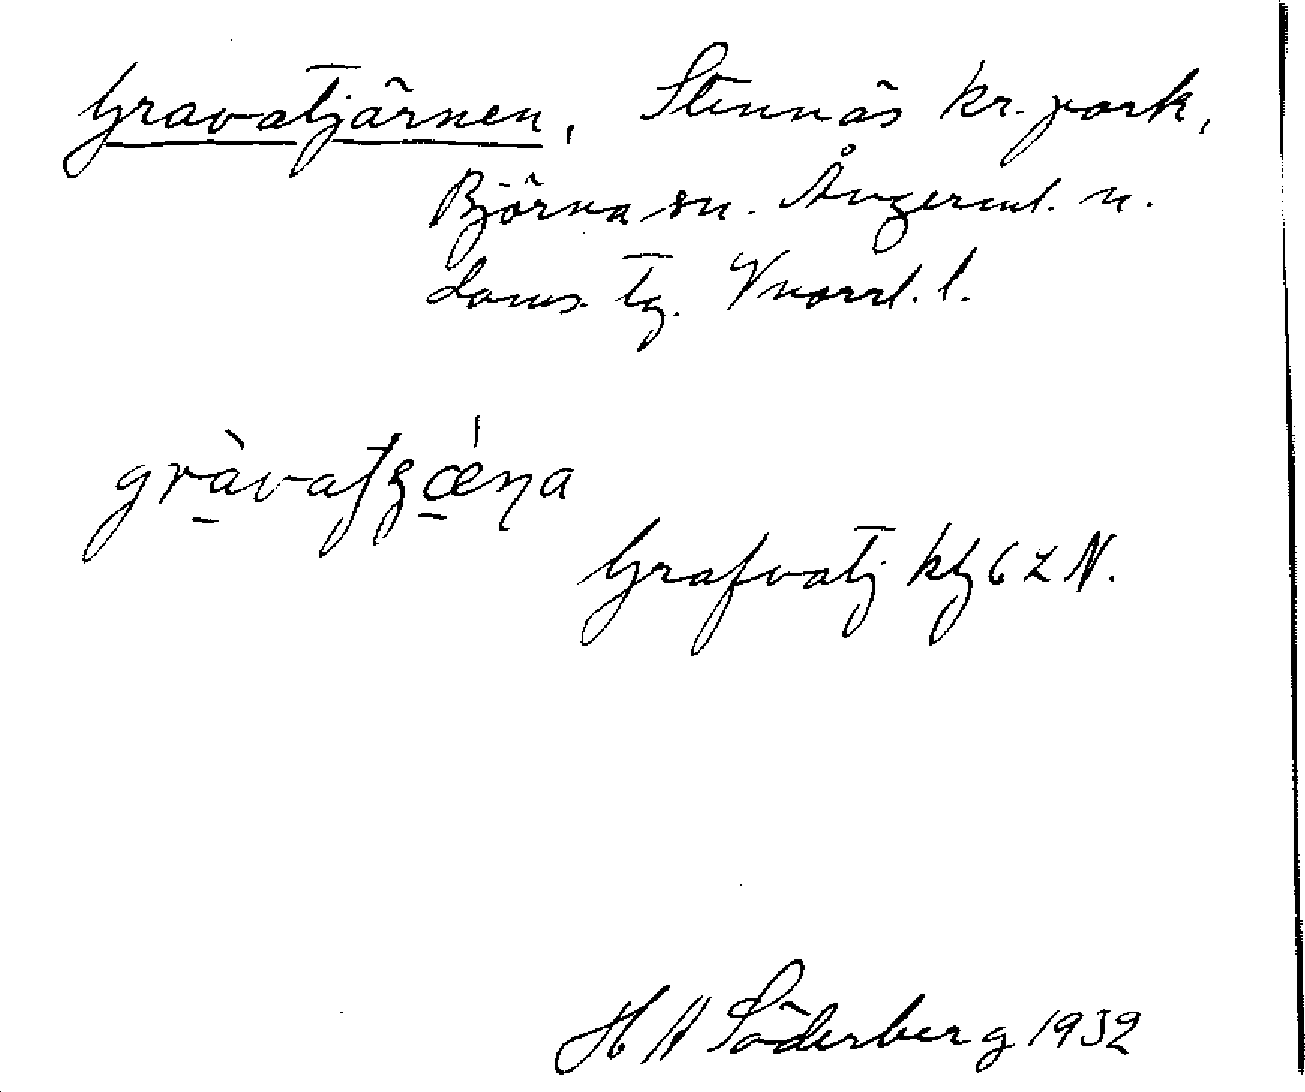 Gravatjärnen, Stennäs kr. park,
Björna sn. Ångerml. n.
Doms. tg. Vnorrl. l.
gràvatʃæ̀ɳa
Grafvatj kbl 62 N.
H A Söderberg 1932